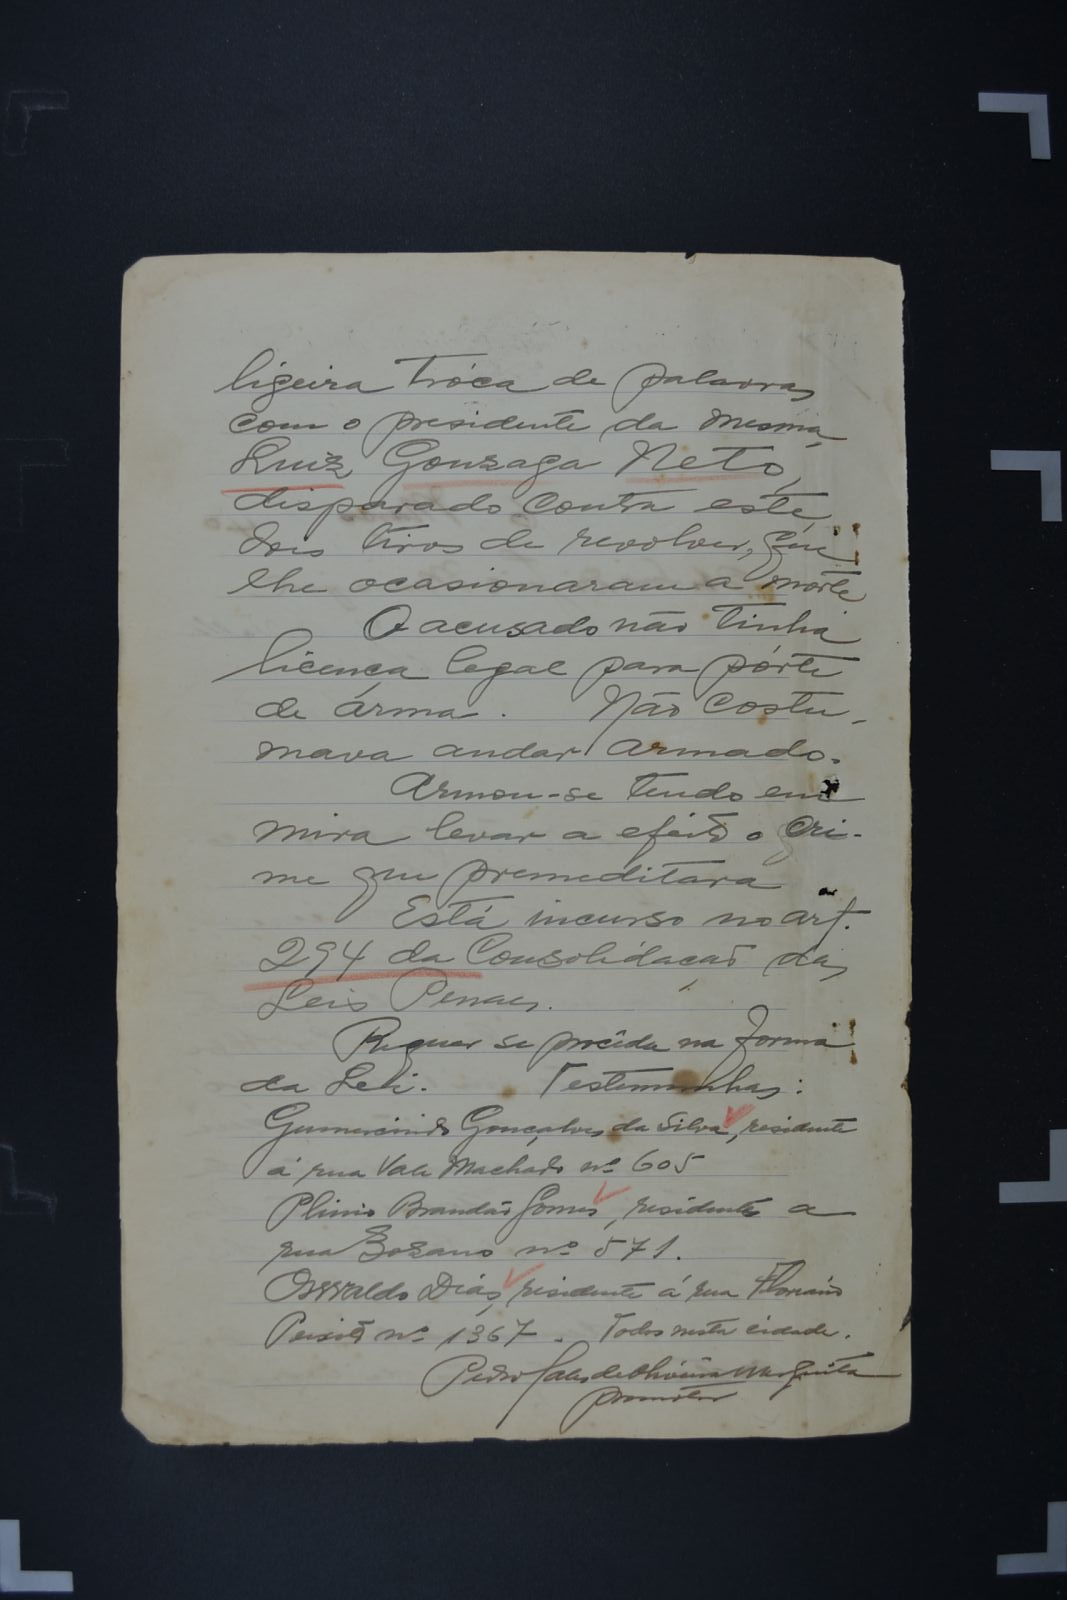 ligeira tróca de palavras
com o presidente da mesma,
Luiz Gonzaga Neto,
disparado contra este
dois tiros de revolver, que
lhe ocasionaram a morte
O acusado não tinha
licença legal para pórte
de árma. Não costu-
mava andar armado.
Armou-se tendo em
mira levar a efeito o cri-
me que premeditara
Está incurso no art.
294 da Consolidação das
Leis Penaes.
Requer se proceda na forma
da Lei. Testemunhas:
Gumercindo Gonçalves da Silva, residente
á rua Vale Machado nº 605
Plinio Brandão Gomes, residente a
rua Bozano nº 571.
Osvaldo Dias, residente á rua Floriano
Peixoto nº 1367. Todos nesta cidade.
Pedro Sales de Oliveira Mesquita
promotor